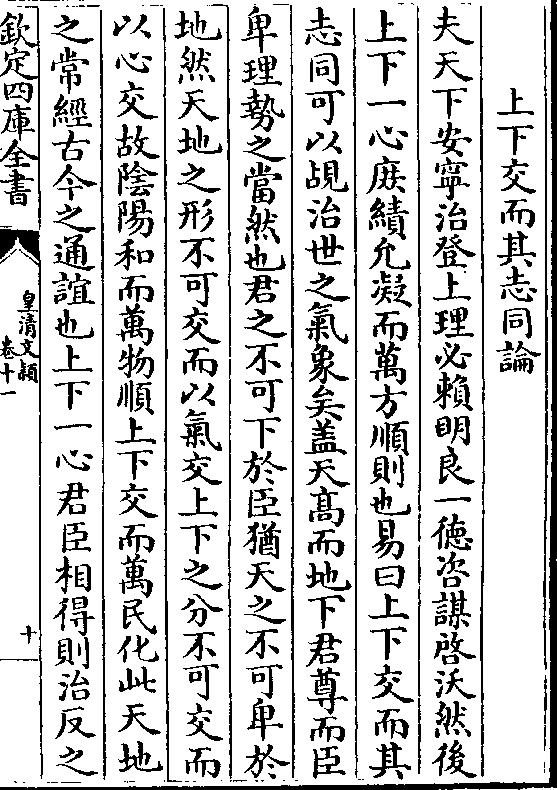 上下交而其志同論
夫天下安寧治登上理必賴明良一德咨謀啓沃然後
上下一心庶績允凝而萬方順則也易曰上下交而其
志同可以覘治世之氣象矣盖天髙而地下君尊而臣
卑理勢之當然也君之不可下於臣猶天之不可卑於
地然天地之形不可交而以氣交上下之分不可交而
以心交故陰陽和而萬物順上下交而萬民化此天地
之常經古今之通誼也上下一心君臣相得則治反之
欽定四庫全書
皇清文穎
卷十一
十